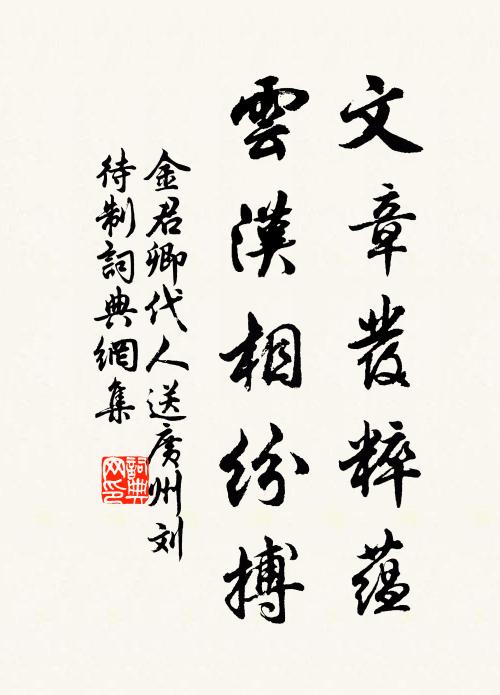 文章發粹蘊
雲漢相紛搏
金君卿代人送廣州刘
待制詞典網集
詞典网印